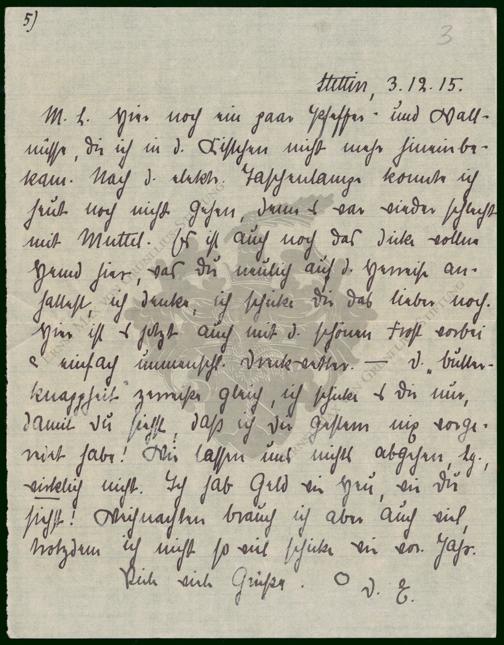 5)
3
Stettin, 3.12.15.
M. L. Hier noch ein paar Pfeffer- und Wall-
nüsse, die ich in d. Kistchen nicht mehr hineinbe-
kam. Nach d. elektr. Taschenlampe konnte ich
heut noch nicht gehen, denn es war wieder schlecht
mit Muttel. Es ist auch noch das dicke wollne
Hemd hier, was Du neulich auf d. Herreise an-
hattest, ich denke, ich schicke Dir das lieber noch.
Hier ist es jetzt auch mit d. schönen Frost vorbei
& einfach unmenschl. Dreckwetter. — D. „Butter-
knappheit" zerreiße gleich, ich schicke es Dir nur,
damit Du siehst, daß ich Dir gestern nix vorge-
redet habe! Wir lassen uns nichts abgehen,
wirklich nicht. Ich hab Geld wie Heu, wie Du
siehst! Weihnachten brauch ich aber auch viel,
trotzdem ich nicht so viel schicke wie vor. Jahr.
Viele viele Grüße. O D. E.